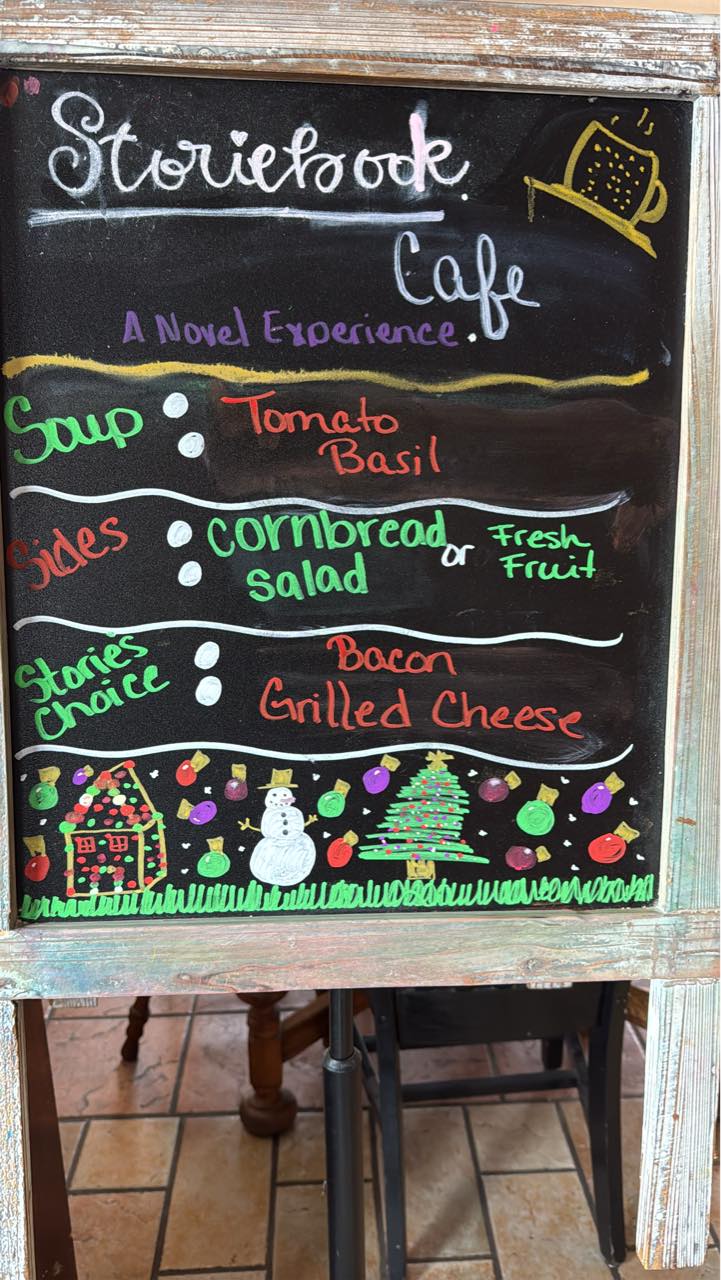 Storiebook
Cafe
A Novel Experience.
Soup : Tomato
Basil
Sides : Cornbread or Fresh
Salad Fruit
Storie's : Bacon
Choice Grilled Cheese